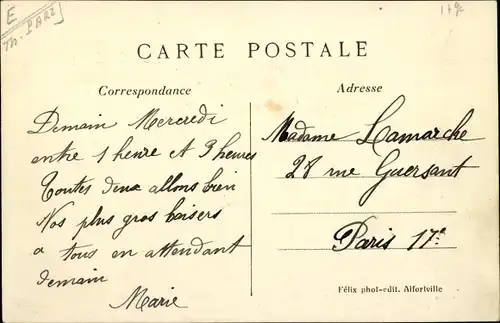 E
Th. PARI
1790
CARTE POSTALE
Correspondance
Adresse
Demain Mercredi
entre 1 heure et 3 heures
Toutes deux allons bien
Nos plus gros baisers
a tous en attendant
demain
Marie
Madame Lamarche
28 rue Guersant
Paris 17e
Félix phot-edit. Alfortville